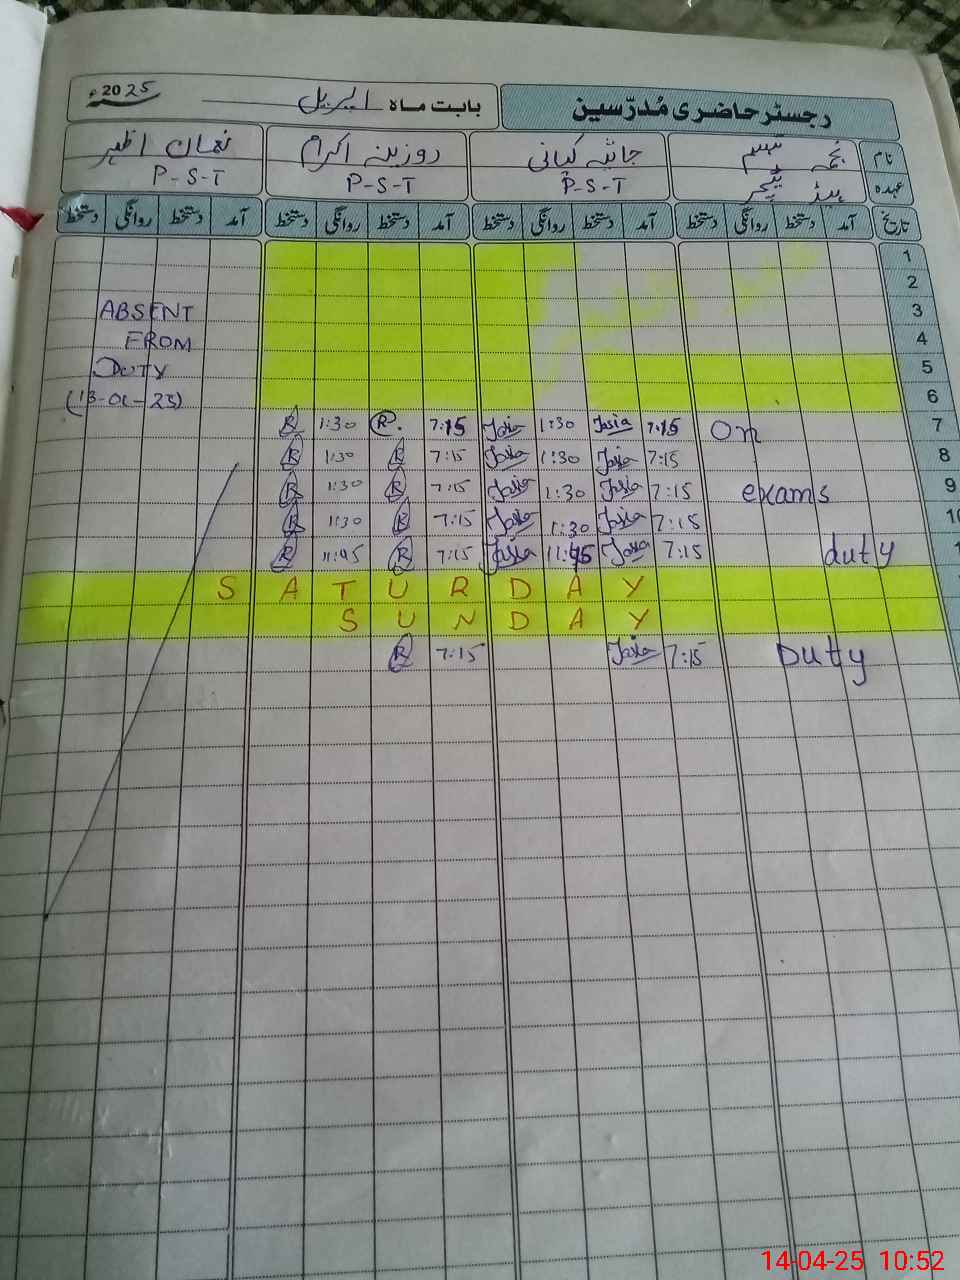 رجسٹر حاضری مُدرّسین
بابت ماہ اپریل 2025ء
نام نجمہ تبسم روزینہ اکرم نعمان اظہر
عہدہ ہیڈ ٹیچر P-S-T P-S-T P-S-T
تاریخ آمد دستخط روانگی دستخط آمد دستخط روانگی دستخط آمد دستخط روانگی دستخط آمد دستخط روانگی دستخط
1
2
ABSENT 3
FROM 4
DUTY 5
6
R 1:30 R. 7:15 Jasia 1:30 Jasia 7:15 On 7
R 1:30 R 7:15 Jasia 1:30 Jasia 7:15 8
R 1:30 R 7:15 Jasia 1:30 Jasia 7:15 exams 9
R 1:30 R 7:15 Jasia 1:30 Jasia 7:15 10
R 11:45 R 7:15 Jasia 11:45 Jasia 7:15 duty
SATURDAY
SUNDAY
R 7:15 Jasia 7:15 Duty
14-04-25 10:52